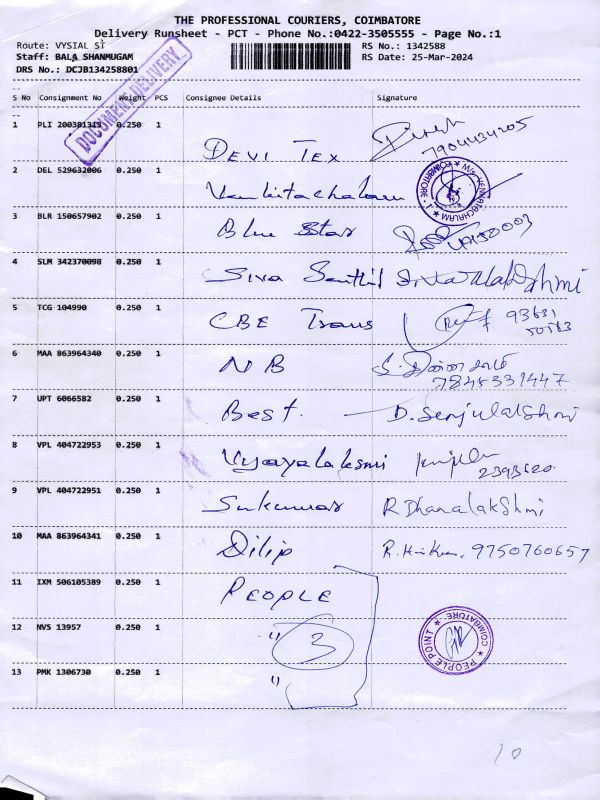 THE PROFESSIONAL COURIERS, COIMBATORE
Delivery Runsheet - PCT - Phone No.:0422-3505555 - Page No.:1
Route: VYSIAL ST
RS No.: 1342588
Staff: BALA SHANMUGAM
RS Date: 25-Mar-2024
DRS No.: DCJB134258801
DOCUMENT DELIVERY
S No Consignment No Weight PCS Consignee Details Signature
1 PLI 200381313 0.250 1 DEVI TEX Dinesh
7904434205
2 DEL 529632006 0.250 1 Venkitachalam
M/s. VENKATACHALAM * COIMBATORE - 1 *
3 BLR 150657902 0.250 1 Blue Star
4 SLM 342370098 0.250 1 Siva Senthil
5 TCG 104990 0.250 1 CBE Trans 93631
6 MAA 863964340 0.250 1 NB
7845331447
7 UPT 6066582 0.250 1 Best. D. Senjulakshmi
8 VPL 404722953 0.250 1 Vijayalaksmi
2393620
9 VPL 404722951 0.250 1 Sukumar R Dhanalakshmi
10 MAA 863964341 0.250 1 Dilip R. Hari 9750760657
11 IXM 506105389 0.250 1 PEOPLE
12 NVS 13957 0.250 1 " 3
PEOPLE POINT * COIMBATORE *
13 PMK 1306730 0.250 1 "
10